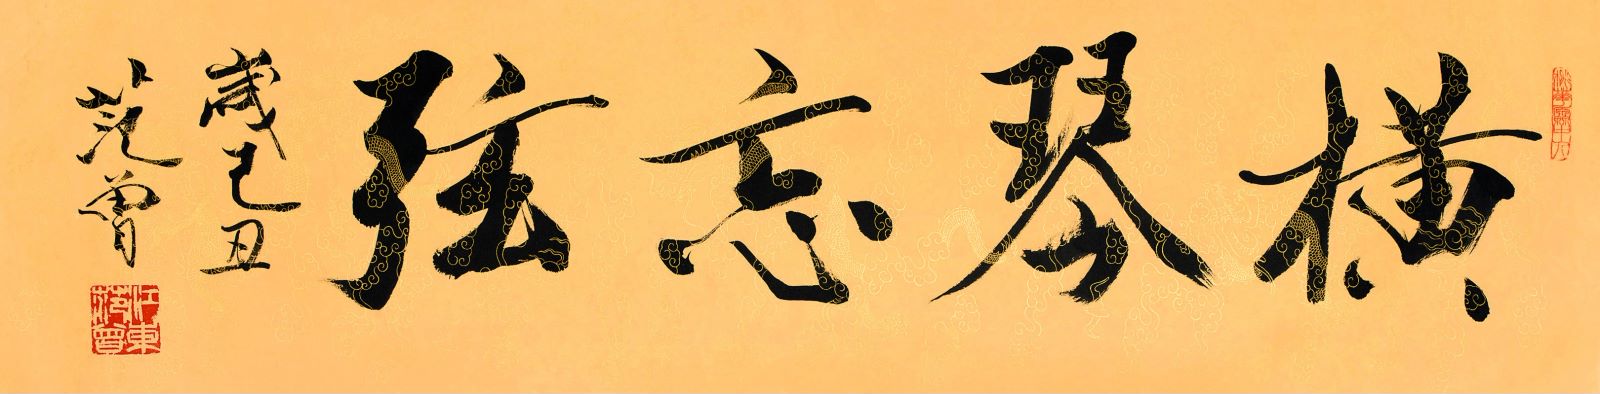 横琴忘弦
歲己丑
范曾
江東范曾